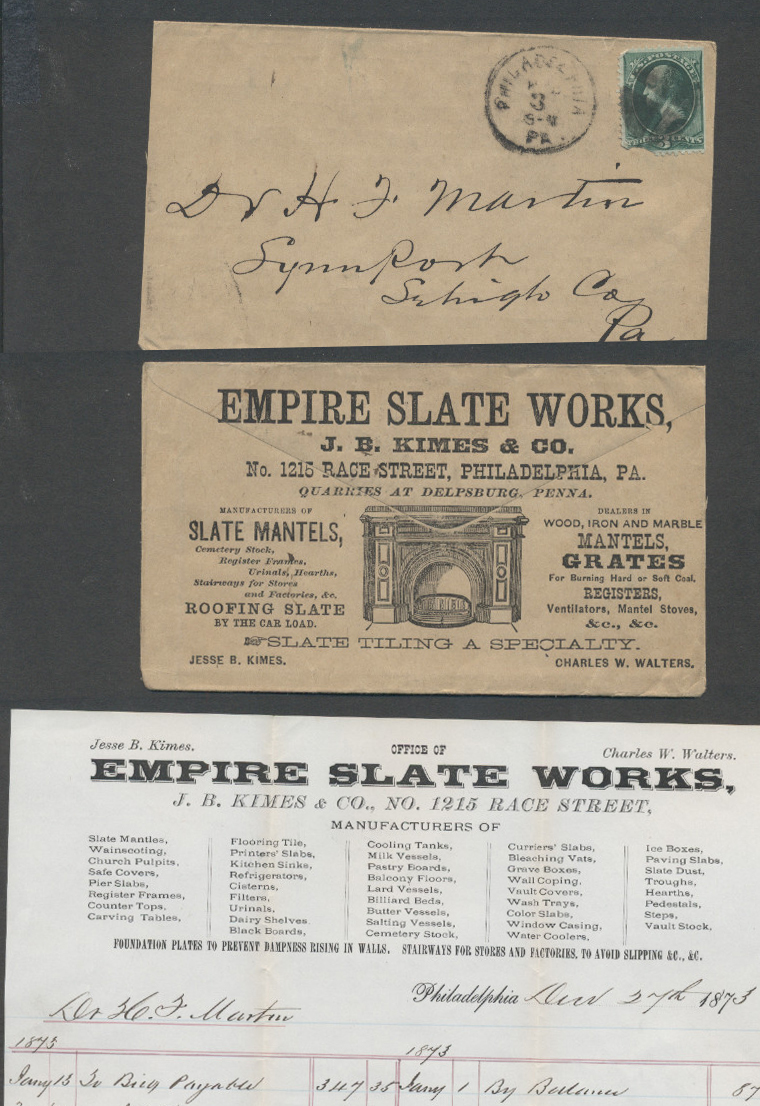 PHILADELPHIA
PA
U.S. POSTAGE
Dr H F Martin
Lynnport
Lehigh Co
Pa
EMPIRE SLATE WORKS,
J. B. KIMES & CO.
No. 1215 RACE STREET, PHILADELPHIA, PA.
QUARRIES AT DELPSBURG, PENNA.
MANUFACTURERS OF
SLATE MANTELS,
Cemetery Stock,
Register Frames,
Urinals, Hearths,
Stairways for Stores
and Factories, &c.
ROOFING SLATE
BY THE CAR LOAD.
DEALERS IN
WOOD, IRON AND MARBLE
MANTELS,
GRATES
For Burning Hard or Soft Coal.
REGISTERS,
Ventilators, Mantel Stoves,
&c., &c.
SLATE TILING A SPECIALTY.
JESSE B. KIMES. CHARLES W. WALTERS.
Jesse B. Kimes. OFFICE OF Charles W. Walters.
EMPIRE SLATE WORKS,
J. B. KIMES & CO., NO. 1215 RACE STREET,
MANUFACTURERS OF
Slate Mantles,
Wainscoting,
Church Pulpits,
Safe Covers,
Pier Slabs,
Register Frames,
Counter Tops,
Carving Tables,
Flooring Tile,
Printers' Slabs,
Kitchen Sinks,
Refrigerators,
Cisterns,
Filters,
Urinals,
Dairy Shelves
Black Boards,
Cooling Tanks,
Milk Vessels,
Pastry Boards,
Balcony Floors,
Lard Vessels,
Billiard Beds,
Butter Vessels,
Salting Vessels,
Cemetery Stock,
Curriers' Slabs,
Bleaching Vats,
Grave Boxes,
Wall Coping,
Vault Covers,
Wash Trays,
Color Slabs,
Window Casing,
Water Coolers,
Ice Boxes,
Paving Slabs,
Slate Dust,
Troughs,
Hearths,
Pedestals,
Steps,
Vault Stock,
FOUNDATION PLATES TO PREVENT DAMPNESS RISING IN WALLS. STAIRWAYS FOR STORES AND FACTORIES, TO AVOID SLIPPING &C., &C.
Philadelphia 27th 1873
Dr H. F. Martin
1873 1873
Jany 13 To Bill Payable 347 35 Jany 1 By Balance 87